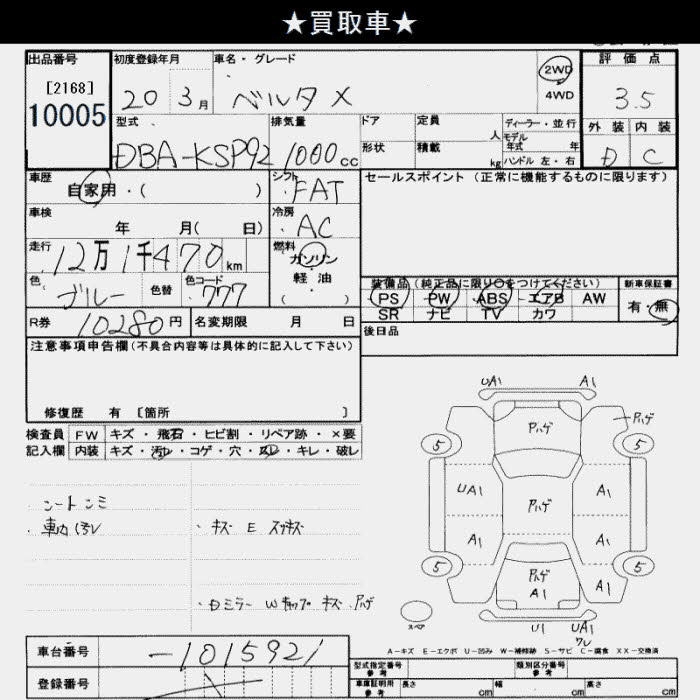 ★買取車★
出品番号 初度登録年月 車名・グレード 2WD 評価点
[2168] 20 3月 ベルタ X 4WD 3.5
10005
型式 排気量 ドア 定員 人 ディーラー・並行 外装 内装
DBA-KSP92 1000cc 形状 積載 kg モデル年式 年 D C
ハンドル 左・右
車歴 自家用・( ) シフト FAT セールスポイント (正常に機能するものに限ります)
車検 年 月( 日) 冷房 AC
走行 12万1千470km 燃料 ガソリン
軽油
( ・ )
色 ブルー 色替 色コード 777 装備品(純正品に限り○をつけてください) 新車保証書
PS PW ABS エアB AW 有・無
SR ナビ TV カワ
R券 10280円 名変期限 月 日 後日品
注意事項申告欄(不具合内容等は具体的に記入して下さい)
修復歴 有 [箇所 ]
検査員 FW キズ・飛石・ヒビ割・リペア跡・×要
記入欄 内装 キズ・汚レ・コゲ・穴・スレ・キレ・破レ
シートシミ
車内汚レ ・キズ E スリキズ
・Dミラー Wキャップ キズ ハゲ
UA1 A1
ハゲ ハゲ
5 5
UA1 ハゲ A1
A1 A1
5 ハゲ 5
A1 A1
スペア U1 UA1
ワレ
A-キズ E-エクボ U-凹み W-補修跡 S-サビ C-腐食 XX-交換済
車台番号 -1015921
登録番号
型式指定番号 参考 類別区分番号 参考
車庫証明用 参考 長さ cm 幅 cm 高さ cm